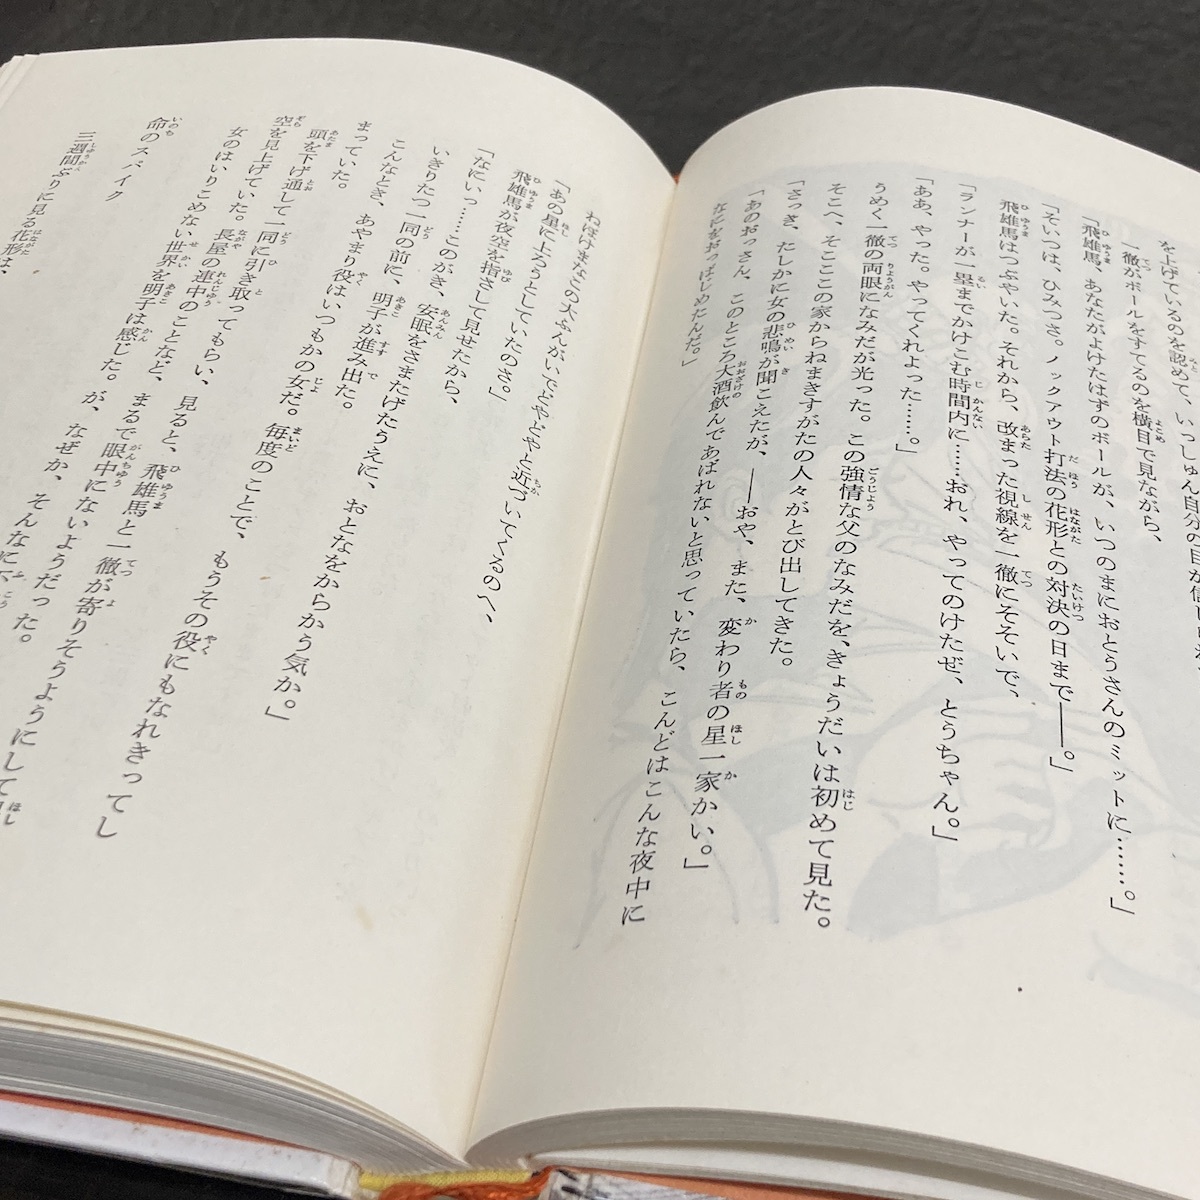 を上げているのを認めて、いっしゅん自分の目が信じ
一徹がボールをすてるのを横目で見ながら、
「飛雄馬、あなたがよけたはずのボールが、いつのまにおとうさんのミットに……。」
「そいつは、ひみつさ。ノックアウト打法の花形との対決の日まで――。」
飛雄馬はつぶやいた。それから、改まった視線を一徹にそそいで、
「ランナーが一塁までかけこむ時間内に……おれ、やってのけたぜ、とうちゃん。」
「ああ、やった。やってくれよった……。」
うめく一徹の両眼になみだが光った。この強情な父のなみだを、きょうだいは初めて見た。
そこへ、そこここの家からねまきすがたの人々がとび出してきた。
「さっき、たしかに女の悲鳴が聞こえたが、――おや、また、変わり者の星一家かい。」
「あのおっさん、このところ大酒飲んであばれないと思っていたら、こんどはこんな夜中に
なにをおっぱじめたんだ。」
ねぼけまなこの大ぶんがいでどやどやと近づいてくるのへ、
「あの星に上ろうとしていたのさ。」
飛雄馬が夜空を指さして見せたから、
「なにいっ……このがき、安眠をさまたげたうえに、おとなをからかう気か。」
いきりたつ一同の前に、明子が進み出た。
こんなとき、あやまり役はいつもかの女だ。毎度のことで、もうその役にもなれきってし
まっていた。
頭を下げ通して一同に引き取ってもらい、見ると、飛雄馬と一徹が寄りそうようにして星
空を見上げていた。長屋の連中のことなど、まるで眼中にないようだった。
女のはいりこめない世界を明子は感じた。が、なぜか、そんなに不こう
命のスパイク
三週間ぶりに見る花形は、